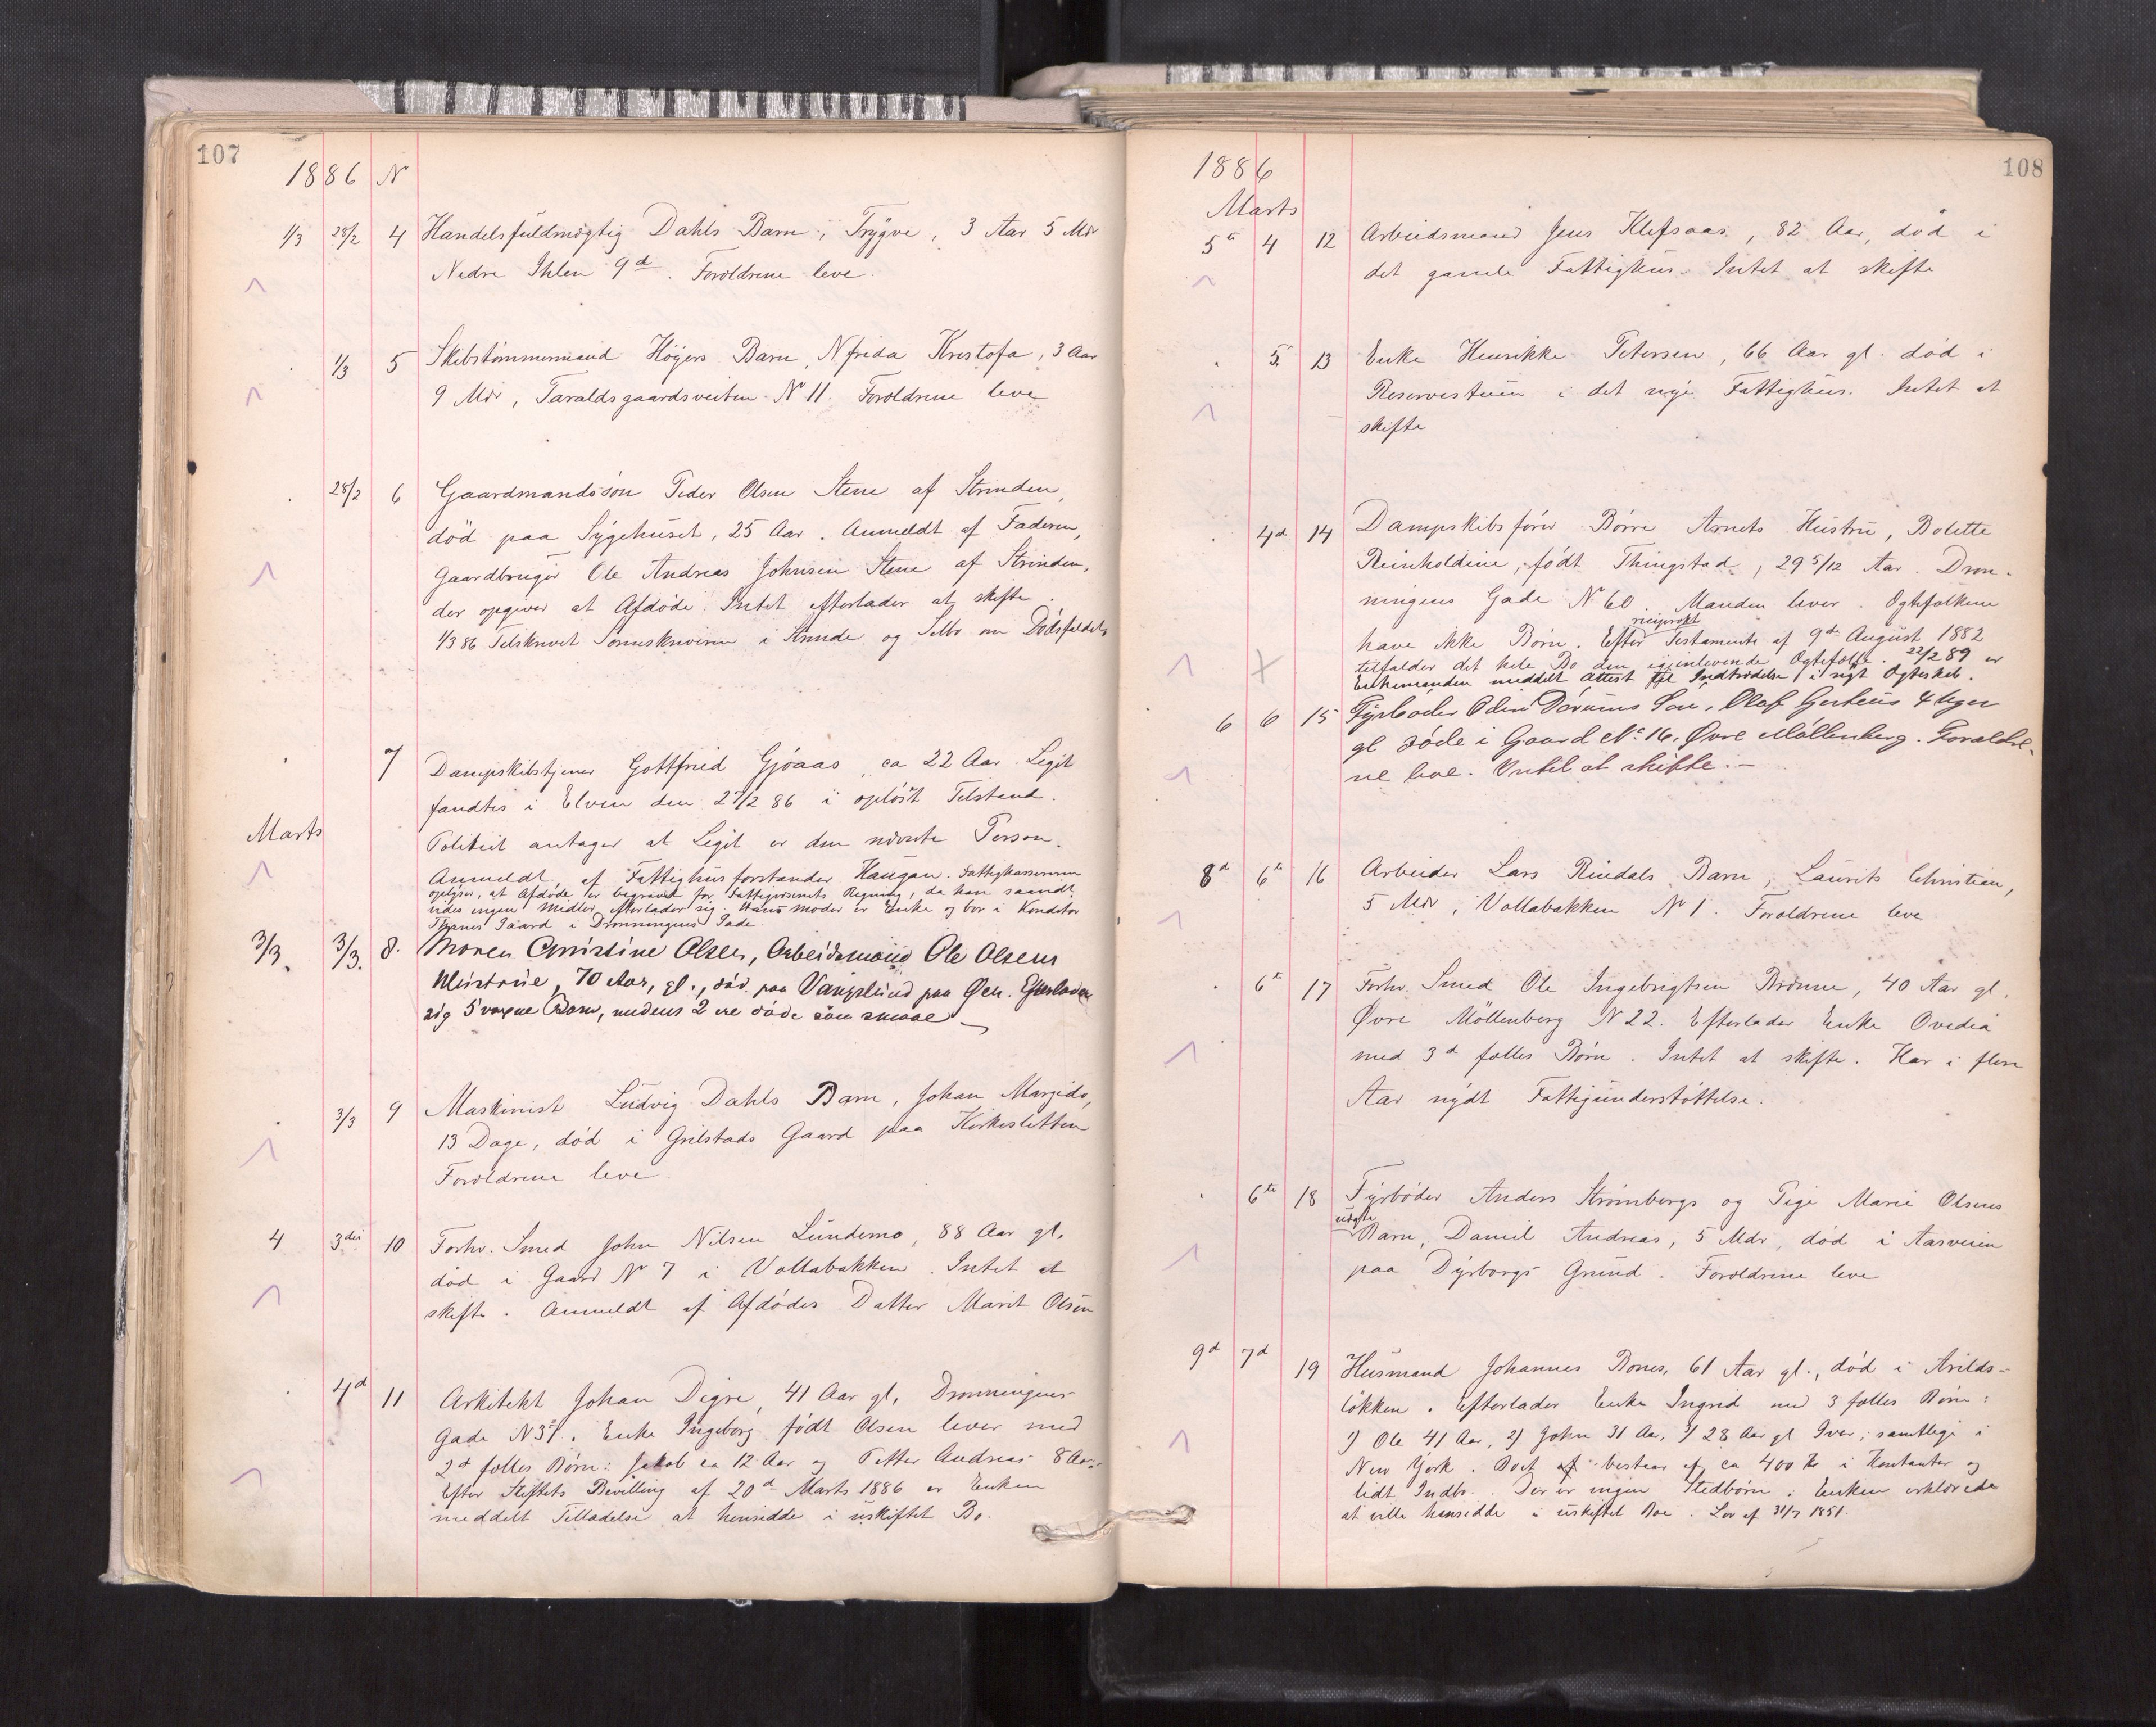 107
1886 N
1/3 28/2 4 Handelsfuldmægtig Dahls Barn, Trygve, 3 Aar 5 Mdr
Nedre Ihlen 9d. Forældrene leve.
1/3 5 Skibstømmermand Höÿers Barn, Kristofa, 3 Aar
9 Mdr, Taraldsgaardsveiten N 11. Forældrene leve
28/2 6 Gaardmandssön Peder Olsen Stene af Strinden,
död paa Sygehuset, 25 Aar. Anmeldt af Faderen,
Gaardbruger Ole Andreas Johnsen Stene af Strinden,
der opgiver at Afdöde Intet efterlader at skifte.
1/3 86 Tilskrevet Sorenskriveren i Strinde og Selbo om Dödsfaldet
7 Dampskibstjener Gottfried Gjöaas, ca 22 Aar. Legit
fandtes i Elven den 27/2 86 i oplöst Tilstand.
Marts
Politiet antager at Legit er den nævnte Person.
Anmeldt af Fattighusforstander Haugan. Fattigkassereren
oplyser, at Afdöde er begravet for Fattigvæsenets Regning, da han saavidt
vides ingen Midler efterlader sig. Hans Moder er Enke og bor i Konditor
Gaard i Dronningens Gade
3/3. 3/3. 8. Maren Christine Olsen, Arbeidsmand Ole Olsens
Hustrue, 70 Aar, gl., död paa Vangslund paa Øen. Efterlader
sig 5 voxne Barn, medens 2 ere döde som smaae
3/3 9 Maskinist Ludvig Dahls Barn, Johan
13 Dage, död i Grilstads Gaard paa Kirkesletten
Forældrene leve.
4 3die 10 Forhv. Smed John Nilsen Lundemo, 88 Aar gl.
död i Gaard N 7 i Vollabakken. Intet at
skifte. Anmeldt af Afdödes Datter Marit Olsen
4d 11 Arkitekt Johan Digre, 41 Aar gl, Dronningens
Gade N 37. Enke Ingeborg födt Olsen lever med
2d fælles Børn: Jakob ca 12 Aar og Petter Andreas 8 Aar.
Efter Stiftets Bevilling af 20d Marts 1886 er Enken
meddelt Tilladelse at hensidde i uskiftet Bo.
108
1886
Marts
5te 4 12 Arbeidsmand Jens Klefsaas, 82 Aar, död i
det gamle Fattighus. Intet at skifte
5. 13 Enke Henrikke Petersen, 66 Aar gl. död i
Reservestuen i det nye Fattighus. Intet at
skifte
4d 14 Dampskibsförer Börre Arnets Hustru, Bolette
Reinholdine, födt Thingstad, 29 5/12 Aar. Dron-
ningens Gade N 60. Manden lever. Ægtefolkene
have ikke Børn. Efter reciprokt Testamente af 9de August 1882
tilfalder det hele Bo den igjenlevende Ægtefælle. 22/2 89 er
Enkemanden meddelt Attest til Indtrædelse i nyt Ægteskab.
6 6 15 Fyrböder Odin Dørums Søn, Olaf 4 Uger
gl döde i Gaard No 16, Øvre Möllenberg. Forældre-
ne leve. Intet at skifte.—
8d 6te 16 Arbeider Lars Rindals Barn, Laurits Christian,
5 Mdr, Vollabakken N 1. Forældrene leve
6te 17 Forhv. Smed Ole Ingebrigtsen Brönne, 40 Aar gl.
Øvre Möllenberg N 22. Efterlader Enke Ovedia
med 3d fælles Børn. Intet at skifte. Har i flere
Aar nydt Fattigunderstöttelse.
6te 18 Fyrböder Anders Strömbergs og Pige Marie Olsens
uægte
Barn, Daniel Andreas, 5 Mdr, död i Aasveien
paa Dyrborgs Grund. Forældrene leve
9d 7d 19 Husmand Johannes Bones, 61 Aar gl., död i Arilds-
lökken. Efterlader Enke Ingrid med 3 fælles Børn:
1) Ole 41 Aar, 2) John 31 Aar, 3) 28 Aar gl Iver, samtlige i
New York. Boet bestaar af ca 400 Kr i Kontanter og
lidt Indb. Der er ingen Stedbørn. Enken erklærede
at ville hensidde i uskiftet Boe. Lov af 31/7 1851.